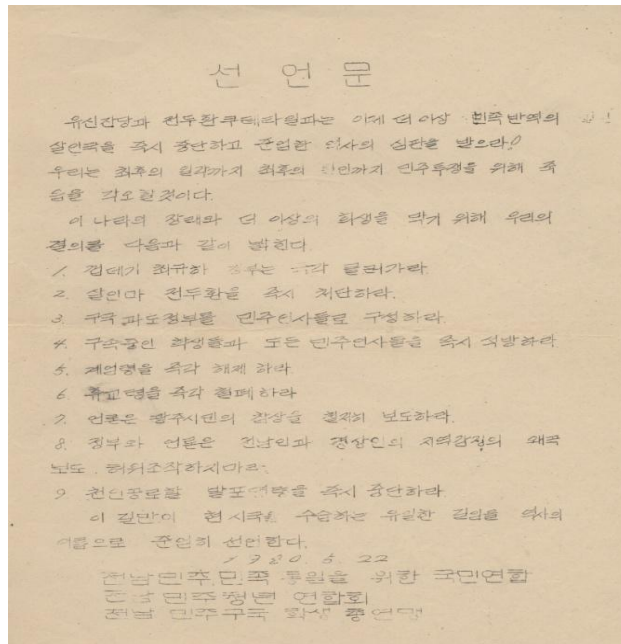 선 언 문
유신잔당과 전두환 쿠데타 일파는 이제 더 이상 민족반역의
살인극을 즉시 중단하고 준엄한 역사의 심판을 받으라!
우리는 최후의 일각까지 최후의 일인까지 민주투쟁을 위해 죽
음을 각오할것이다.
이 나라의 장래와 더 이상의 희생을 막기 위해 우리의
결의를 다음과 같이 밝힌다
1. 껍데기 최규하 정부는 즉각 물러가라
2. 살인마 전두환을 즉시 처단하라.
3. 구국 과도정부를 민주인사들로 구성하라
4. 구속중인 학생들과 모든 민주인사들을 즉시 석방하라
5. 계엄령을 즉각 해제 하라
6. 휴교령을 즉각 철폐하라
7. 언론은 광주시민의 참상을 철저히 보도하라.
8. 정부와 언론은 전남인과 경상인의 지역감정의 왜곡
보도. 허위조작하지마라.
9. 천인공로할 발포명령을 즉시 중단하라
이 길만이 현 시국을 수습하는 유일한 길임을 역사의
이름으로 준엄히 선언한다.
1980. 5. 22
전남 민주, 민족 통일을 위한 국민연합
전남 민주청년 연합회
전남 민주구국 학생 총연맹